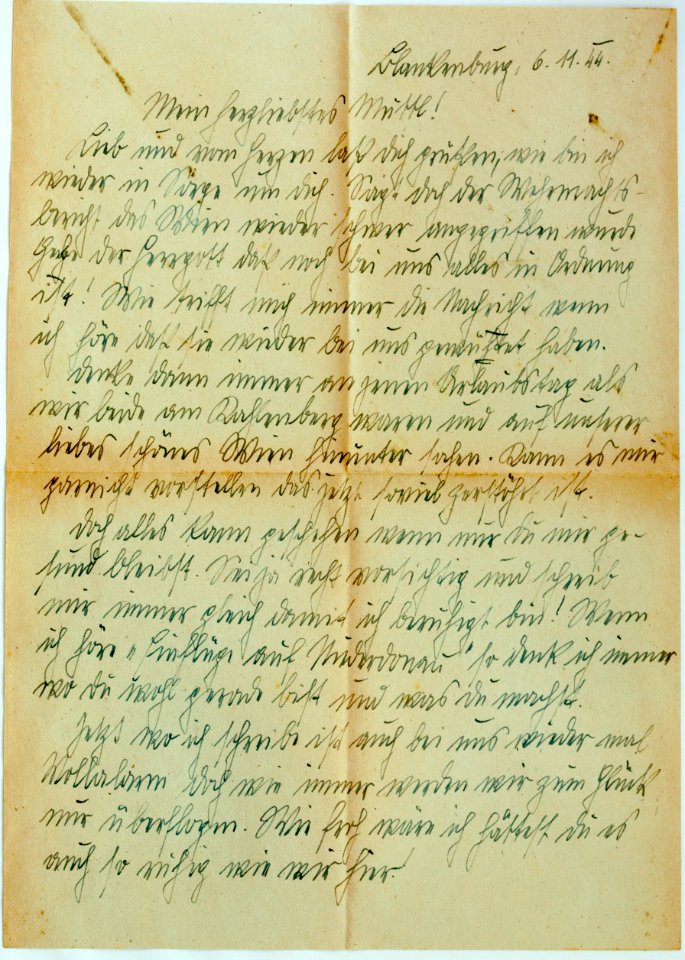 Blankenburg, 6.11.44.
Mein herzliebstes Muttl!
Lieb und vom Herzen laß dich grüßen, wie bin ich
wieder in Sorge um dich. Sagt doch der Wehrmachts-
bericht das Wien wieder schwer angegriffen wurde
Gebe der Herrgott daß noch bei uns alles in Ordnung
ist! Wie trifft mich immer die Nachricht wenn
ich höre daß sie wieder bei uns gewühtet haben.
Denke dann immer an jenen Urlaubstag als
wir beide am Kahlenberg waren und auf unser
liebes schönes Wien hinunter sahen. Kann es mir
garnicht vorstellen das jetzt soviel zerstöhrt ist.
Doch alles kann geschehen wenn nur du mir ge-
sund bleibst. Sei ja recht vorsichtig und schreib
mir immer gleich damit ich beruhigt bin! Wenn
ich höre "Einflüge auf Niederdonau" so denk ich immer
wo du wohl gerade bist und was du machst.
Jetzt wo ich schreibe ist auch bei uns wieder mal
Vollalarm doch wie immer werden wir zum Glück
nur überflogen. Wie froh wäre ich hättest du es
auch so ruhig wie wir hier!